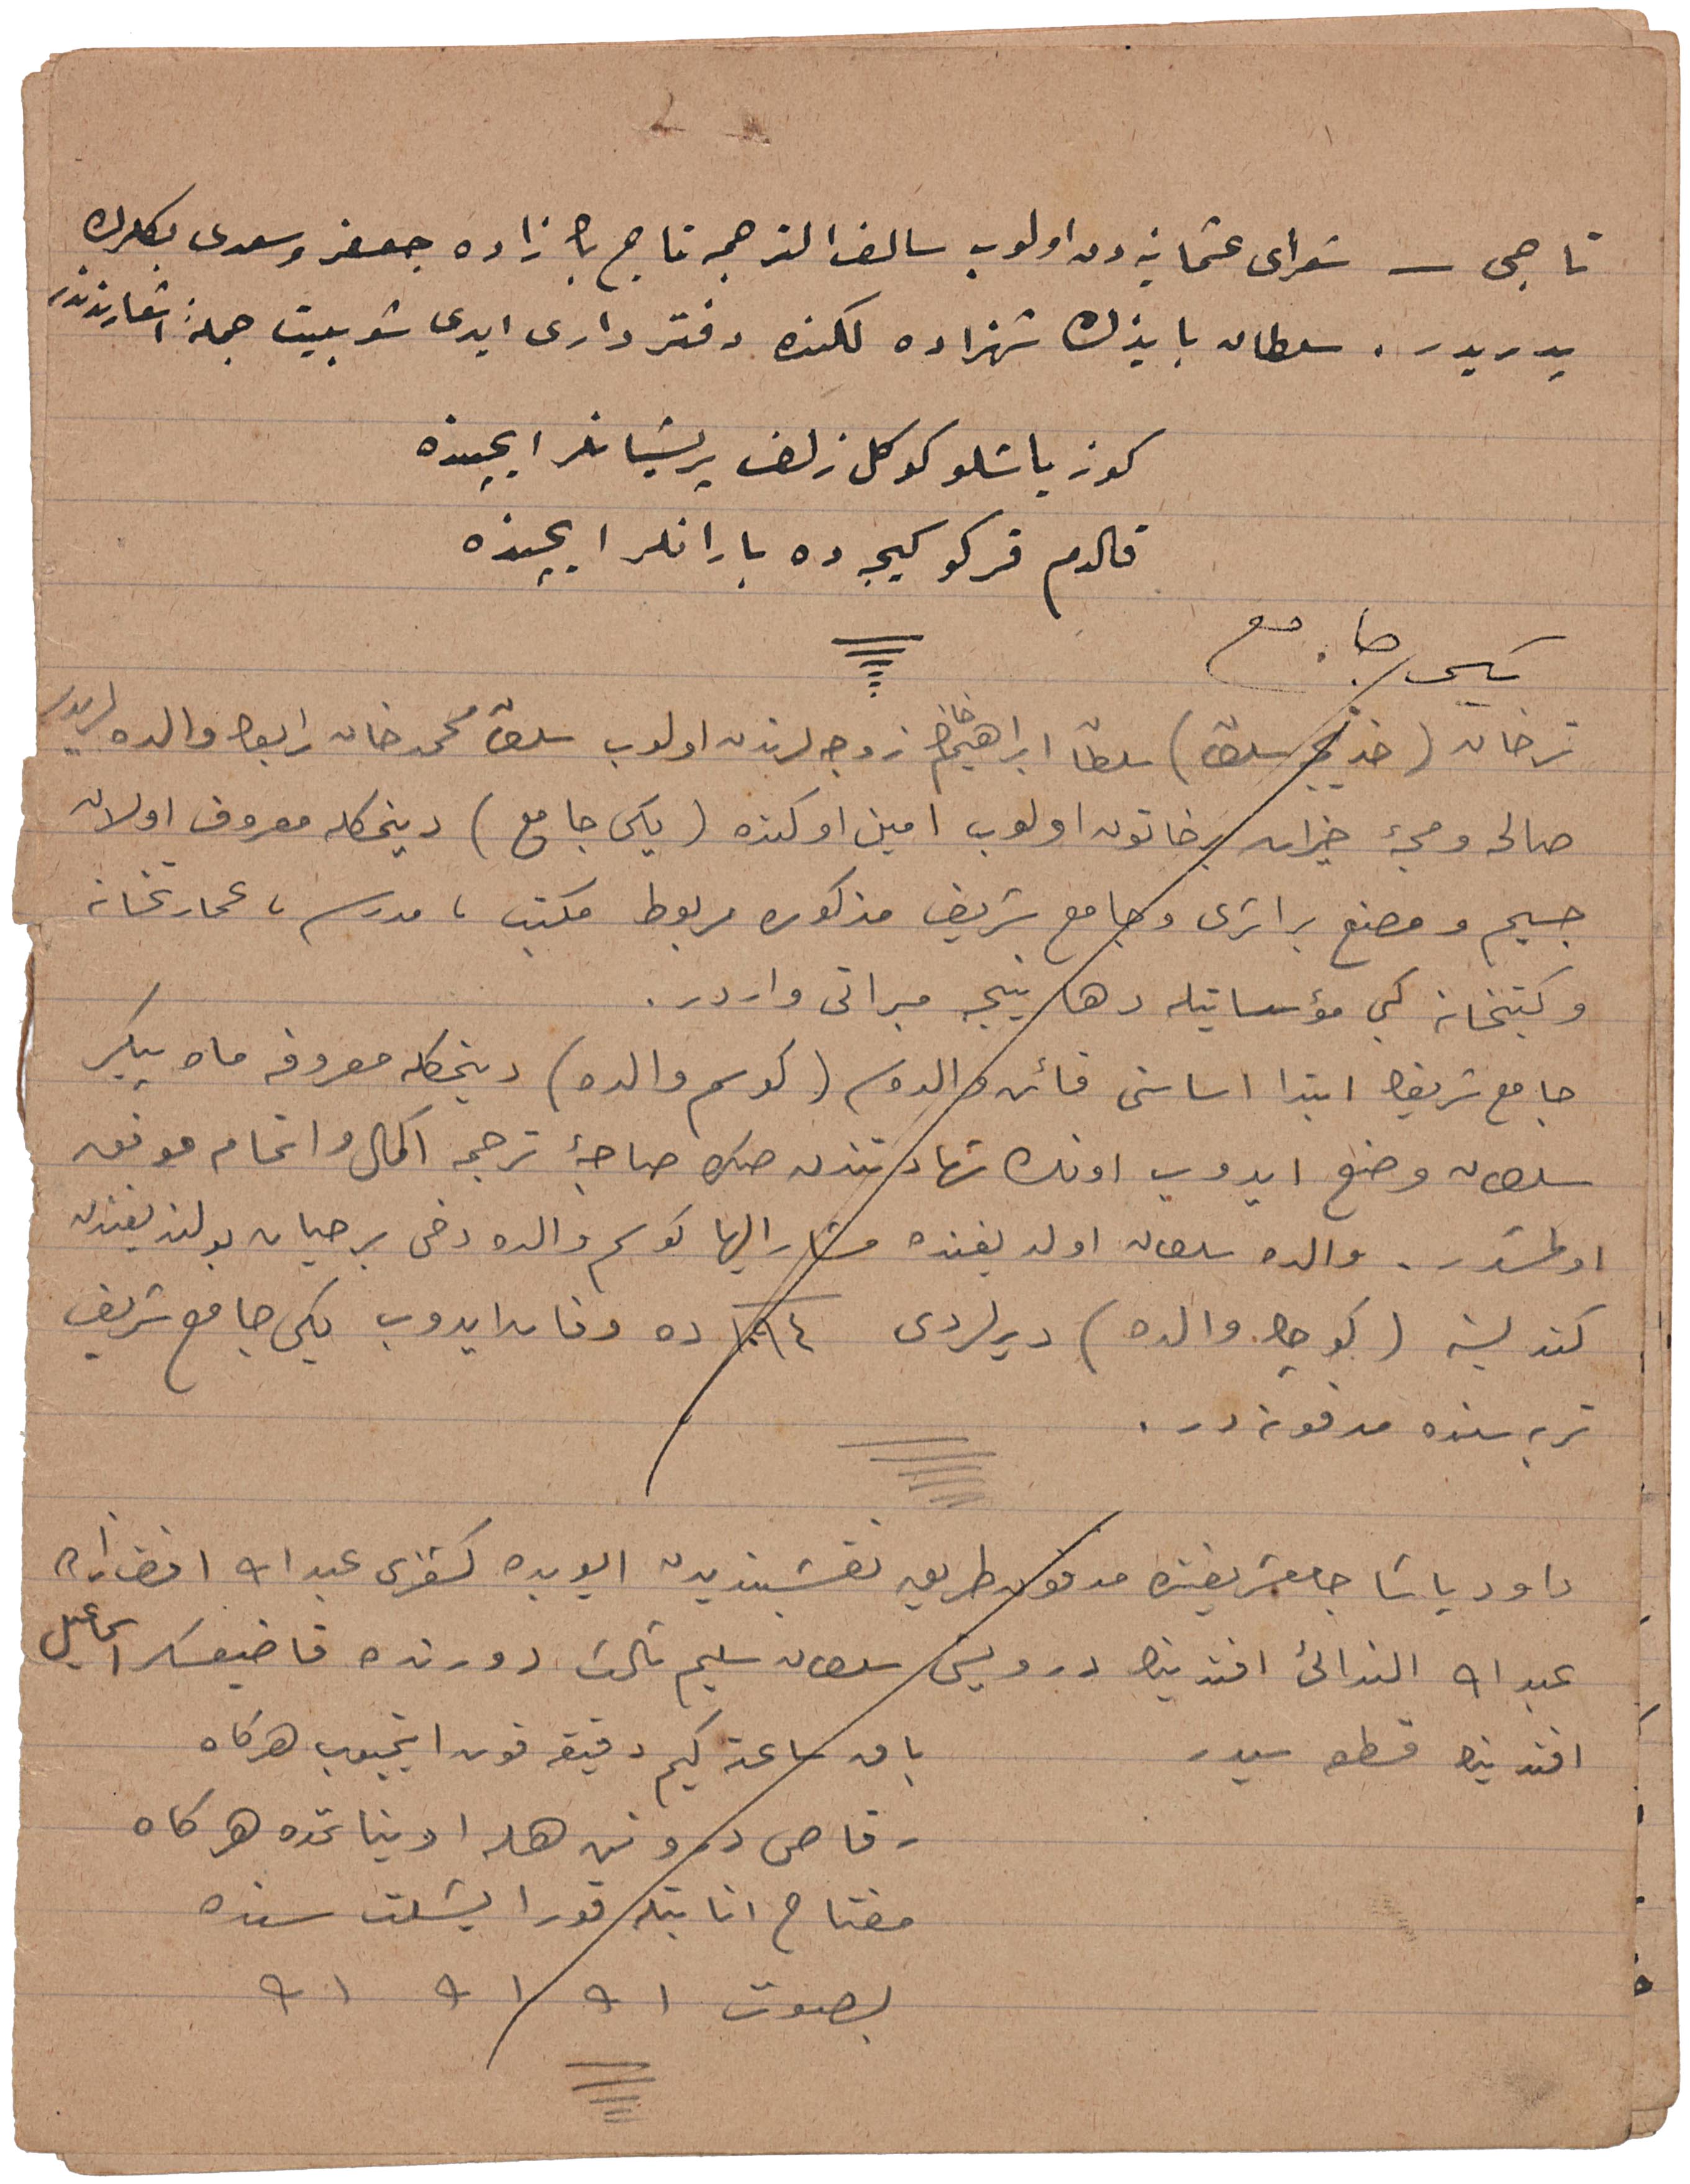 تاجی — شعرای عثمانیه دن اولوب سالف الترجمه تاج بك زاده جعفر و سعدی بكلرك
پدریدر . سلطان بایزیدك شهزاده لكنده دفترداری ایدی شو بیت جملۀ اشعارندندر
كوز یاشلو كوكل زلف پریشانلر ایچینده
قالدم قركو كیجه ده بارانلر ایچینده
یكی جامع
ترخان (خدیجه سلطان) سلطان ابراهیم خانك زوجه لرندن اولوب سلطان محمد خان رابعك والده لریدر
صالحه و محبۀ خیرات بر خاتون اولوب امین اوكنده (یكی جامع) دینمكله معروف اولان
جسیم و مصنع بر اثری و جامع شریف مذكوره مربوط مكتب ، مدرسه ، عمارتخانه
و كتبخانه كبی مؤسساتیله دها نیجه مبراتی واردر .
جامع شریفك ابتدا اساسنی قائن والده سی (كوسم والده) دینمكله معروفه ماه پیكر
سلطان وضع ایدوب اونك شهادتندن صكره صاحبۀ ترجمه اكمال و اتمامه موفق
اولمشدر . والده سلطان اولدیغنده مشار الیها كوسم والده دخی بر حیات بولندیغندن
كندیسنه (كوچك والده) دیرلردی ١٠٩٤ ده وفات ایدوب یكی جامع شریف
تربه سنده مدفونه در .
داود پاشا جامع شریفنده مدفون طریق نقشبندیدن ایوبده كشغری عبد الله افندیزاده
عبد الله الندائی افندینك درویشی سلطان سلیم ثالث دورنده قاضیعسكر اسماعیل
افندینك قطعه سیدر
باق ساعته كیم دقیقه فوت ایتمیوب هركاه
رقاص درونی هله اوینامقده هركاه
مفتاح انابتله قورا یشلت سنده
بصوت الله الله الله